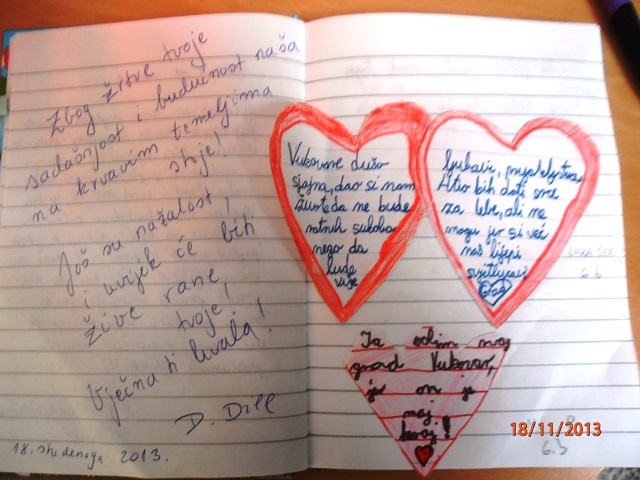 Zbog žrtve tvoje
sadašnjost i budućnost naša
na krvavim temeljima
stoje!
Još su nažalost,
i uvijek će biti
žive rane,
tvoje,
Vječna ti hvala!
D. Dill
18. studenoga 2013.
Vukovare dušo
sjajna, dao si nam
život da ne bude
ratnih sukoba
nego da
bude
više
ljubavi, prijateljstva,
htio bih dati sve
za tebe, ali ne
mogu jer si već
naš lijepi
svjetlucavi
Grad
Ja volim moj
grad Vukovar,
jer on je
moj
heroj!
6.b
18/11/2013
6.b